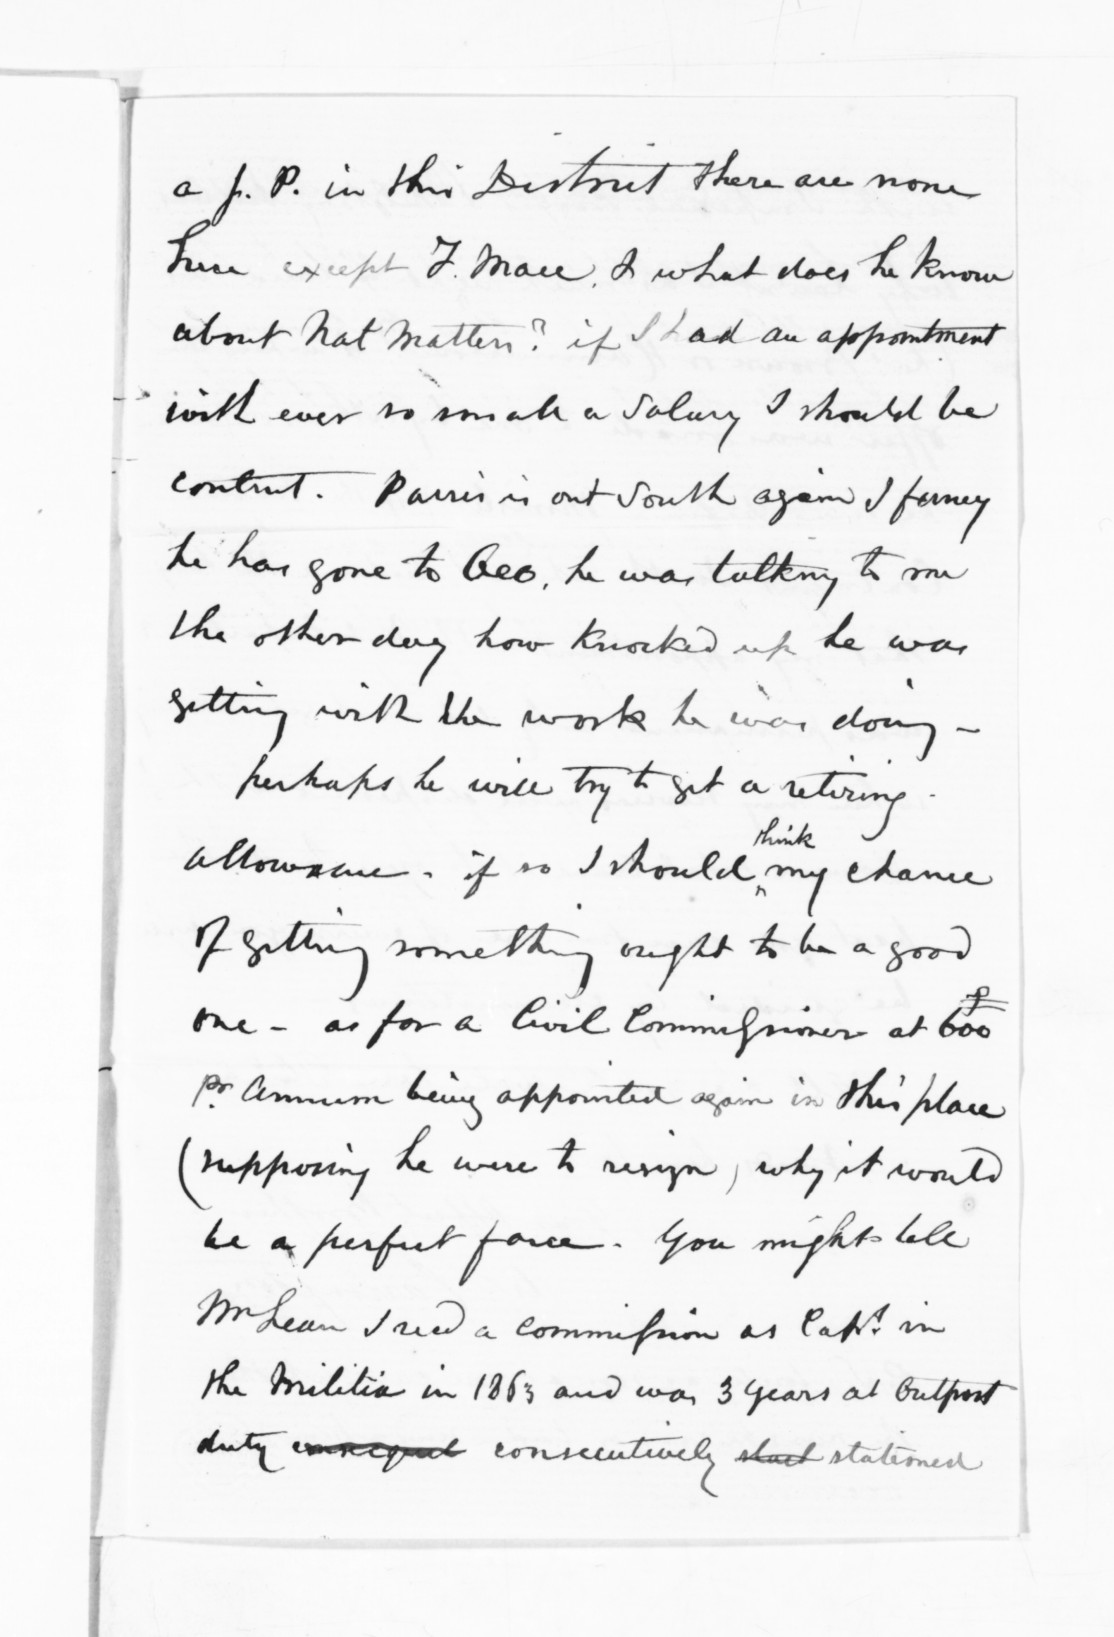 a J. P. in this District there are none
here except F. Mace, & what does he know
about Nat Matters? if I had an appointment
with ever so small a Salary I should be
content. Parris is out South again I fancey
he has gone to Oeo, he was talking to me
the other day how knocked up he was
getting with the work he was doing –
perhaps he will try to get a retiring
allowance - if so I should think my chance
of getting something ought to be a good
one - as for a Civil Commissioner at £600
pr. Annum being appointed again in this place
(supposing he were to resign) why it would
be a perfect farce. You might tell
McLean I recd a commission as Capt. in
the Militia in 1863 and was 3 years at Outpost
duty consequet consecutively stact stationed